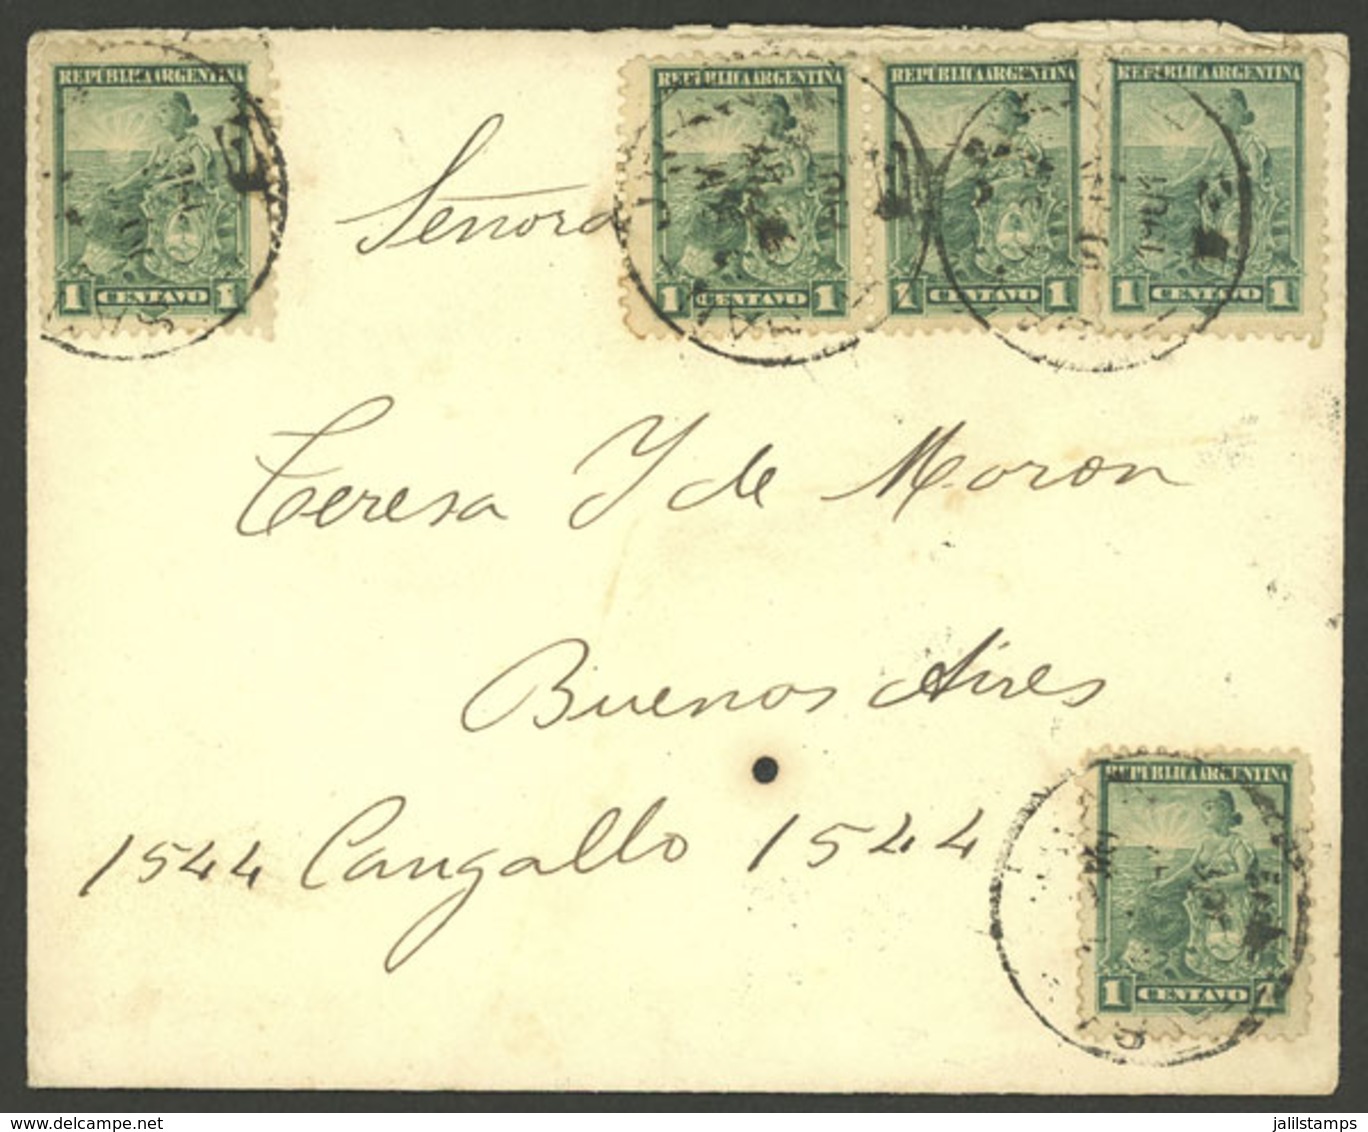 REPUBLICA ARGENTINA
1 CENTAVO 1
REPUBLICA ARGENTINA
1 CENTAVO 1
REPUBLICA ARGENTINA
1 CENTAVO 1
REPUBLICA ARGENTINA
1 CENTAVO 1
Señora
Teresa Y de Moron
Buenos Aires
1544 Cangallo 1544
REPUBLICA ARGENTINA
1 CENTAVO 1
delcampe.net
jalilstamps